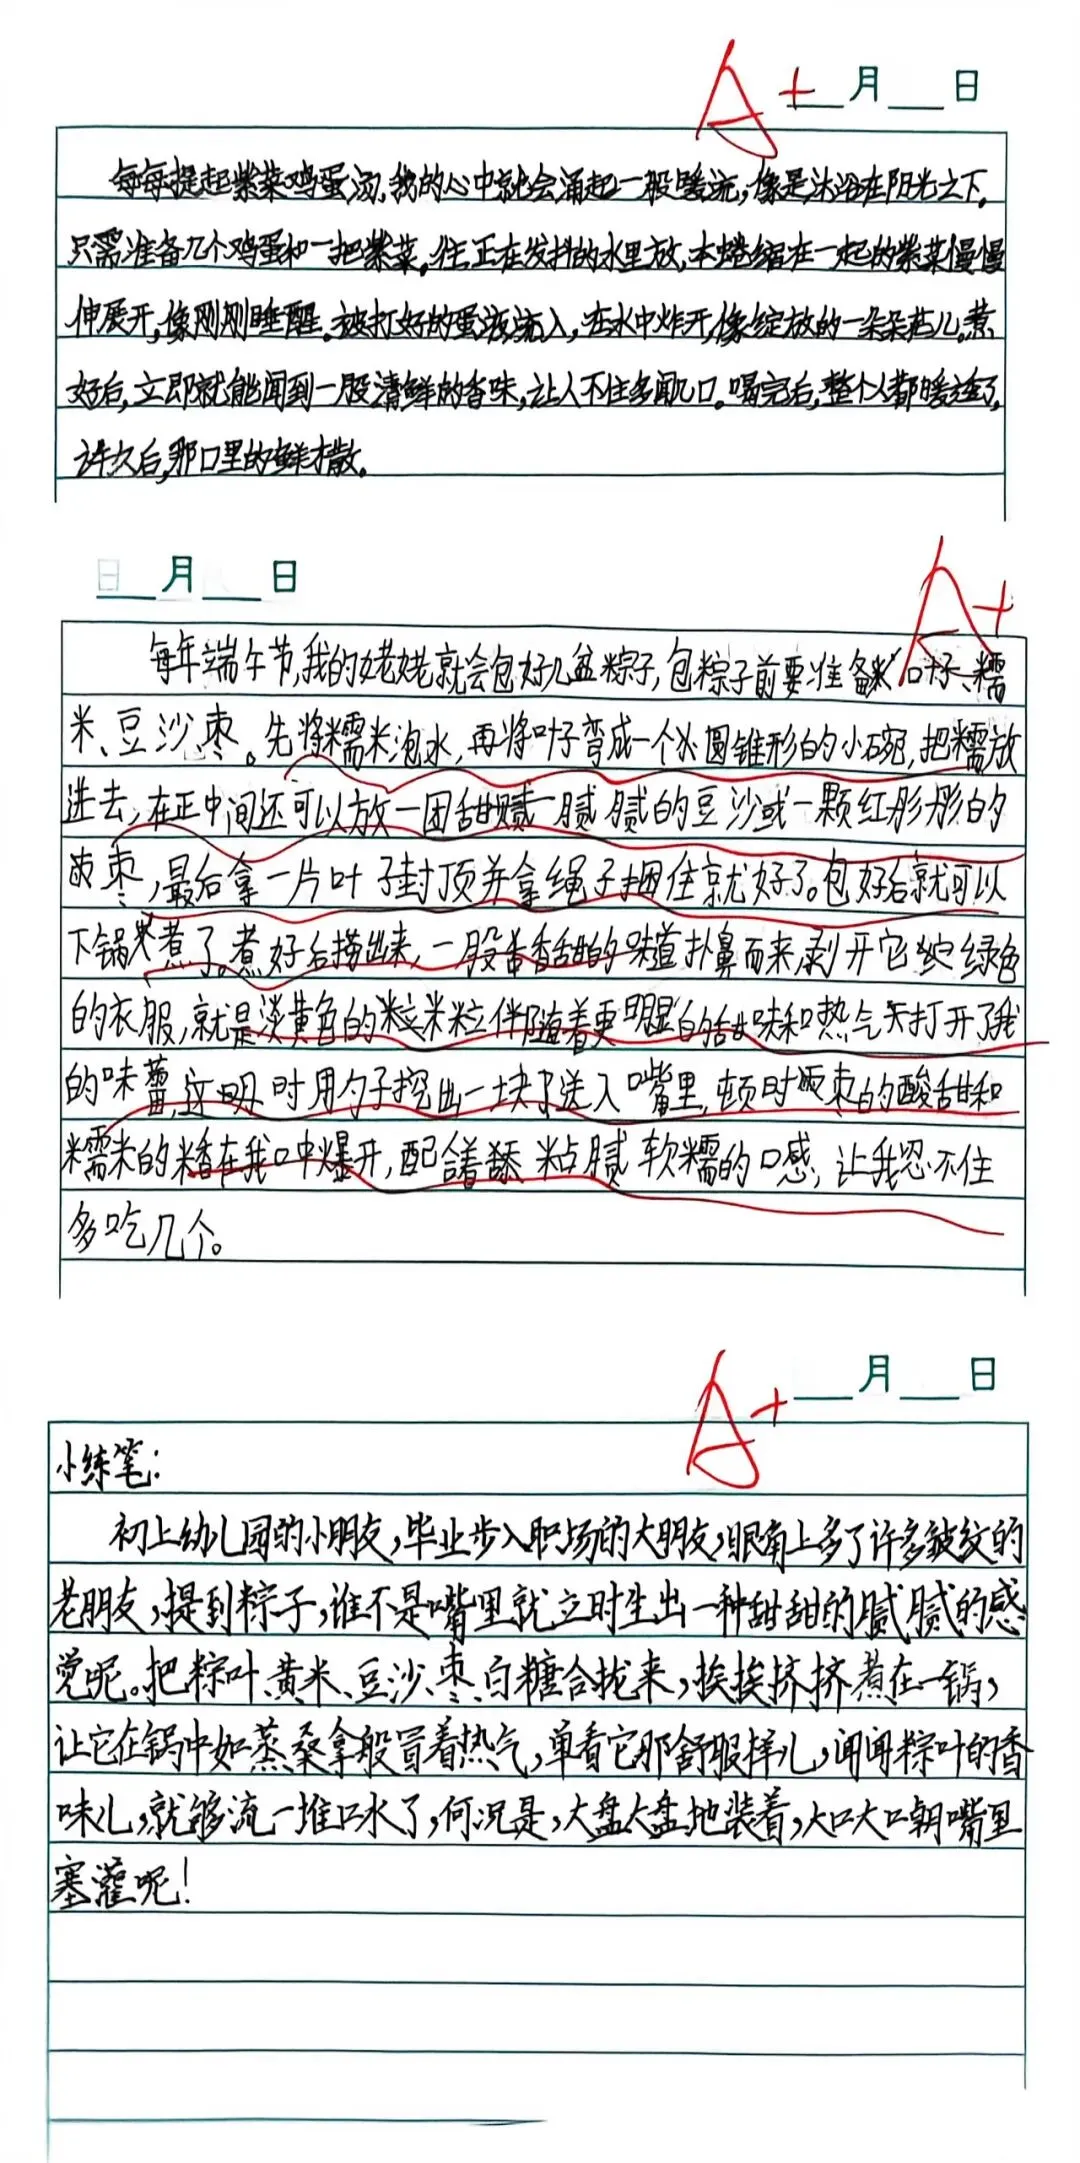 A+
月 日
每每提起紫菜鸡蛋汤,我的心中就会涌起一股暖流,像是沐浴在阳光之下。
只需准备几个鸡蛋和一把紫菜。往正在发抖的水里放,本蜷缩在一起的紫菜慢慢
伸展开,像刚刚睡醒。被打好的蛋液流入,在水中炸开,像绽放的一朵朵花儿。煮
好后,立即就能闻到一股清鲜的香味,让人不住多闻几口。喝完后,整个人都暖透了,
许久后,那口里的鲜才散。
日 月 日
A+
每年端午节,我的姥姥就会包好几盆粽子,包粽子前要准备 叶子、糯
米、豆沙、枣。先将糯米泡水,再将叶子弯成一个 圆锥形的小碗,把糯放
进去,在正中间还可以放一团甜腻腻的豆沙或一颗红彤彤的
枣,最后拿一片叶子封顶并拿绳子捆住就好了。包好后就可以
下锅煮了。煮好后捞出来,一股香甜的味道扑鼻而来,剥开它 绿色
的衣服,就是淡黄色的 米粒伴随着更明显的甜味和热气 打开了我
的味蕾,这 时用勺子挖出一块了送入嘴里,顿时 枣的酸甜和
糯米的 香在我口中爆开,配合着 粘腻软糯的口感,让我忍不住
多吃几个。
A+
月 日
小练笔:
初上幼儿园的小朋友,毕业步入职场的大朋友,眼角上多了许多皱纹的
老朋友,提到粽子,谁不是嘴里就立时生出一种甜甜的腻腻的感
觉呢。把粽叶、黄米、豆沙、枣、白糖合拢来,挨挨挤挤煮在一锅,
让它在锅中如蒸桑拿般冒着热气,单看它那舒服样儿,闻闻粽叶的香
味儿,就够流一堆口水了,何况是,大盘大盘地装着,大口大口朝嘴里
塞灌呢!